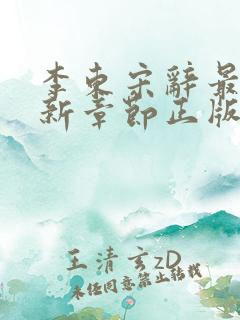 李东宋辞最
新章节正版
王清玄zD
未经同意禁止转载